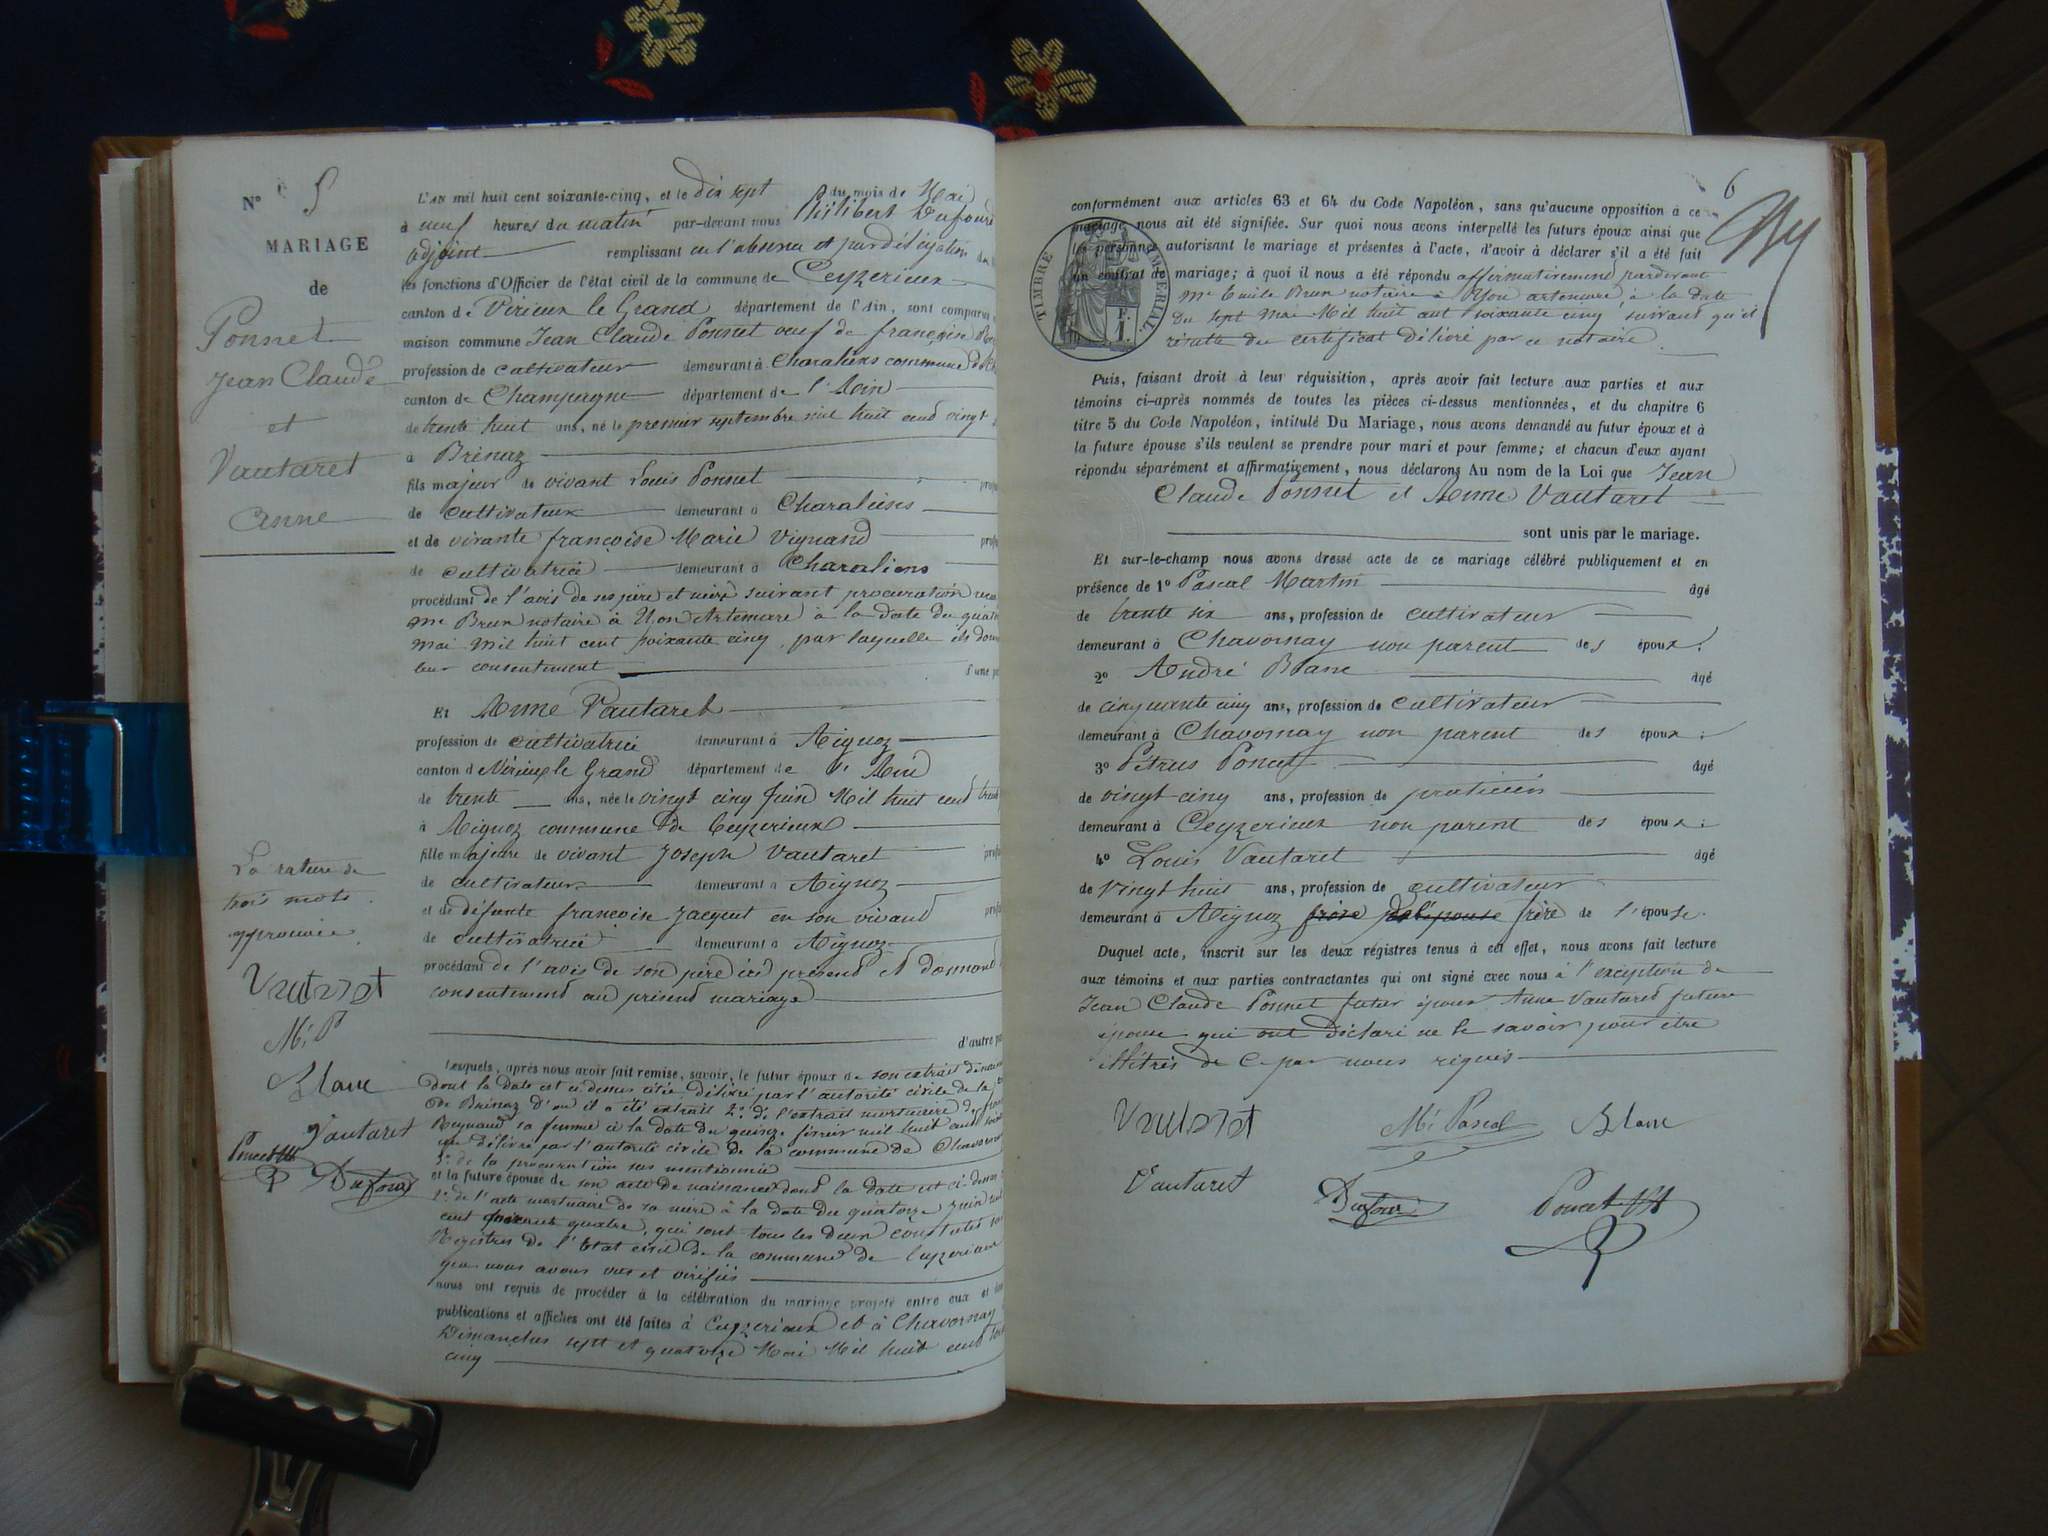 N° 5
MARIAGE
de
Ponnet
Jean Claude
et
Vautaret
Anne
L'AN mil huit cent soixante-cinq, et le dix sept du mois de Mai
à neuf heures du matin par-devant nous Philibert Dufour
adjoint remplissant en l'absence et par délégation du
les fonctions d'Officier de l'état civil de la commune de Ceyzerieux
canton de Virieux le Grand département de l'Ain, sont comparus
maison commune Jean Claude Ponnet veuf de françoise
profession de cultivateur demeurant à Charaliens commune de
canton de Champagne département de l'Ain
de trente huit ans, né le premier septembre mil huit cend vingt
à Brénaz
fils majeur de vivant Louis Ponnet
de cultivateur demeurant à Charaliens
et de vivante françoise Marie Vignand
de cultivatrice demeurant à Charaliens
procédant de l'avis de ses père et mère suivant procuration
Me Brun notaire à Yon Artemare à la date du
mai mil huit cent soixante cinq, par laquelle ils
leur consentement d'une
Et Anne Vautaret
profession de cultivatrice demeurant à Aignoz
canton d Virieux le Grand département de l'Ain
de trente ans, née le vingt cinq Juin Mil huit cend
à Aignoz commune de Ceyzerieux
fille majeure de vivant Joseph Vautaret
de cultivateur demeurant à Aignoz
et de défunte françoise Jacquet en son vivand
de cultivatrice demeurant à Aignoz
procédant de l'avis de son père ici présend et donnand
consentemend au présend mariage
d'autre
La rature de
trois mots
approuvée
Vautaret
M. P
Blanc
Vautaret
Poncet
Dufour
Lesquels, après nous avoir fait remise, savoir, le futur époux de son extrait
dont la date est ci dessus citée délivré par l'autorité civile de la
de Brénaz d'où il a été extrait 2° de l'extrait mortuaire de
Reynaud sa femme à la date du quinze février mil huit cend
un délivré par l'autorité civile de la commune de
3° de la procuration sus mentionnée
et la future épouse de son acte de naissance dond la date est ci-dessus
2° de l'acte mortuaire de sa mère à la date du quatorze juin
cent quatre, qui sont tous les deux constatés
Registres de l'Etat civil de la commune de Ceyzerieux
que nous avons vus et vérifiés
nous ont requis de procéder à la célébration du mariage projeté entre eux et
publications et affiches ont été faites à Ceyzerieux et à Chavornay
Dimanches sept et quatorze Mai Mil huit cend
cinq
6
conformément aux articles 63 et 64 du Code Napoléon, sans qu'aucune opposition à ce
mariage nous ait été signifiée. Sur quoi nous avons interpellé les futurs époux ainsi que
les personnes autorisant le mariage et présentes à l'acte, d'avoir à déclarer s'il a été fait
un contrat de mariage; à quoi il nous a été répondu affirmativemend pardevant
Me Emile Brun notaire à Yon artemare, à la date
du sept mai Mil huit cent soixante cinq suivant qu'il
résulte du certificat délivré par ce notaire
TIMBRE
F.
1.
Puis, faisant droit à leur réquisition, après avoir fait lecture aux parties et aux
témoins ci-après nommés de toutes les pièces ci-dessus mentionnées, et du chapitre 6
titre 5 du Code Napoléon, intitulé Du Mariage, nous avons demandé au futur époux et à
la future épouse s'ils veulent se prendre pour mari et pour femme; et chacun d'eux ayant
répondu séparément et affirmativement, nous déclarons Au nom de la Loi que Jean
Claude Ponnet et Anne Vautaret
sont unis par le mariage.
Et sur-le-champ nous avons dressé acte de ce mariage célébré publiquement et en
présence de 1° Pascal Martin âgé
de trente six ans, profession de cultivateur
demeurant à Chavornay non parent des époux;
2° André Blanc âgé
de cinquante cinq ans, profession de cultivateur
demeurant à Chavornay non parent des époux;
3° Pétrus Poncet âgé
de vingt-cinq ans, profession de praticien
demeurant à Ceyzerieux non parent des époux;
4° Louis Vautaret âgé
de vingt huit ans, profession de cultivateur
demeurant à Aignoz frère de l'épouse frère de l'épouse.
Duquel acte, inscrit sur les deux régistres tenus à cet effet, nous avons fait lecture
aux témoins et aux parties contractantes qui ont signé avec nous à l'exception de
Jean Claude Ponnet futur époux Anne Vautaret future
épouse qui ont déclaré ne le savoir pour être
illétrés de ce par nous requis
Vautaret M. Pascal Blanc
Vautaret Dufour Poncet